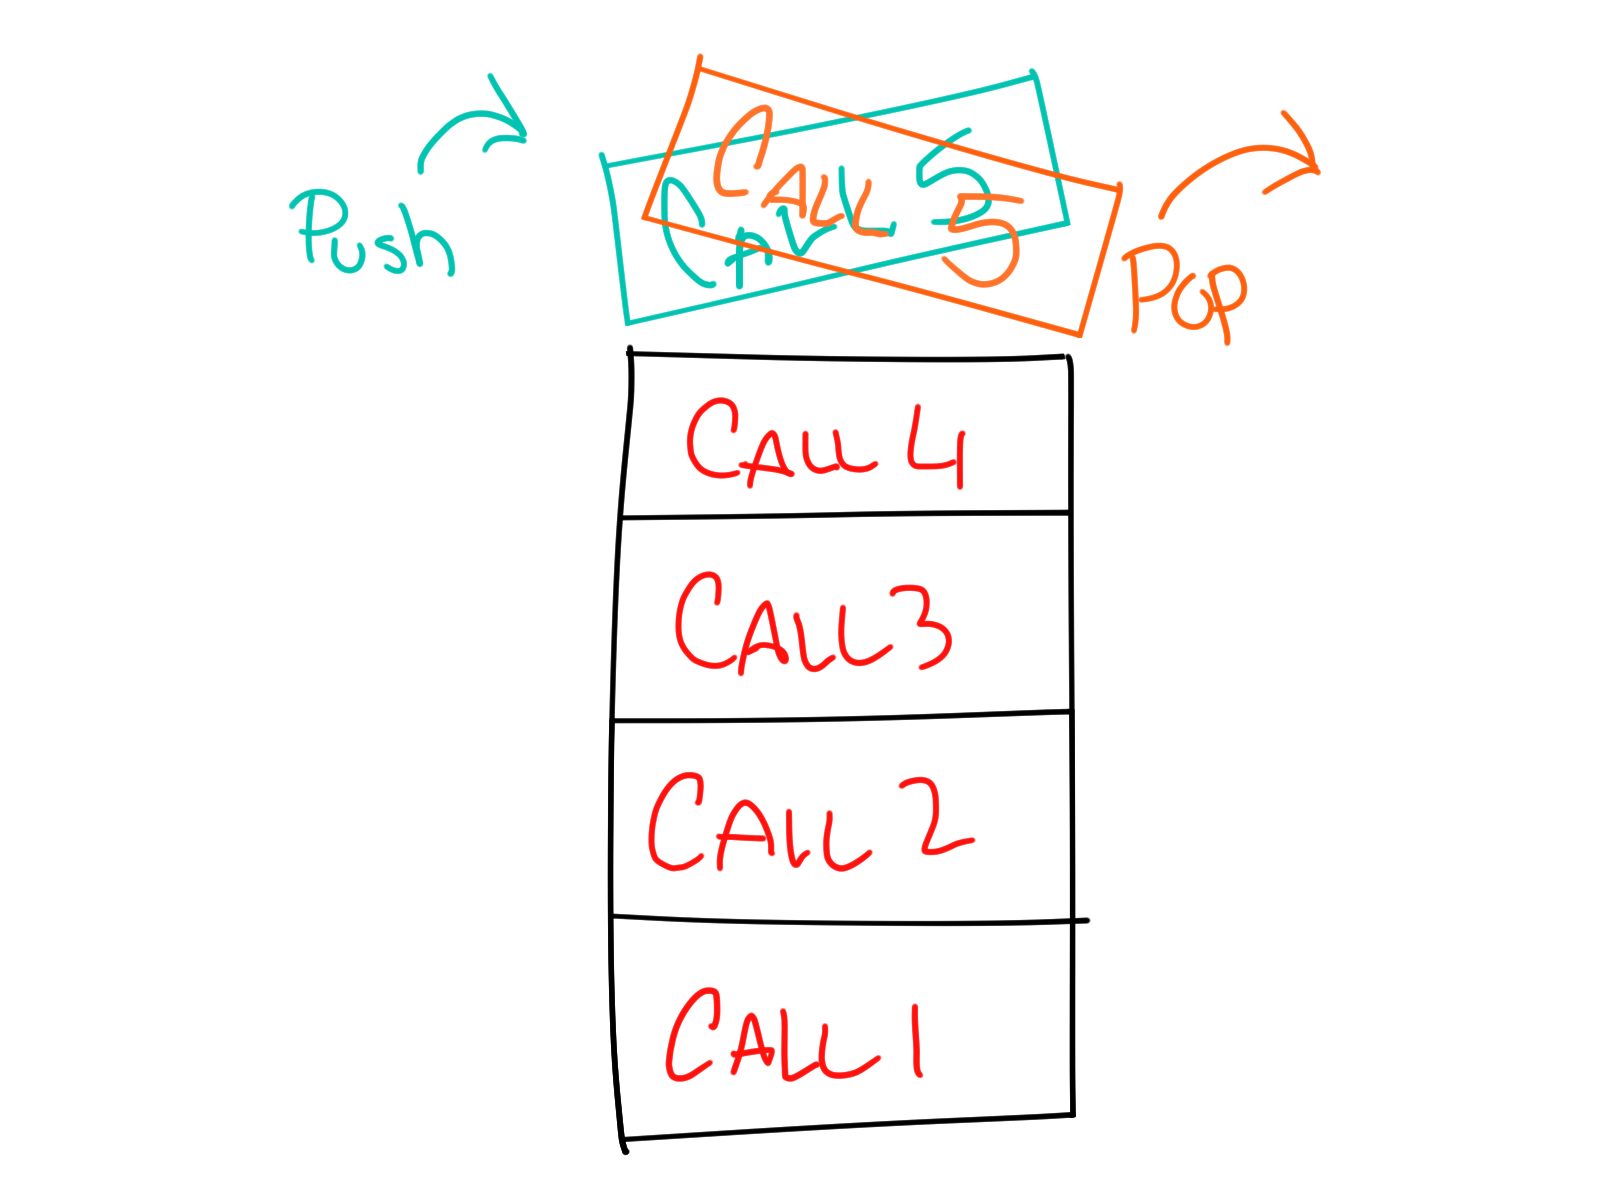 Push
CALL 5
CALL 5
Pop
CALL 4
CALL 3
CALL 2
CALL 1